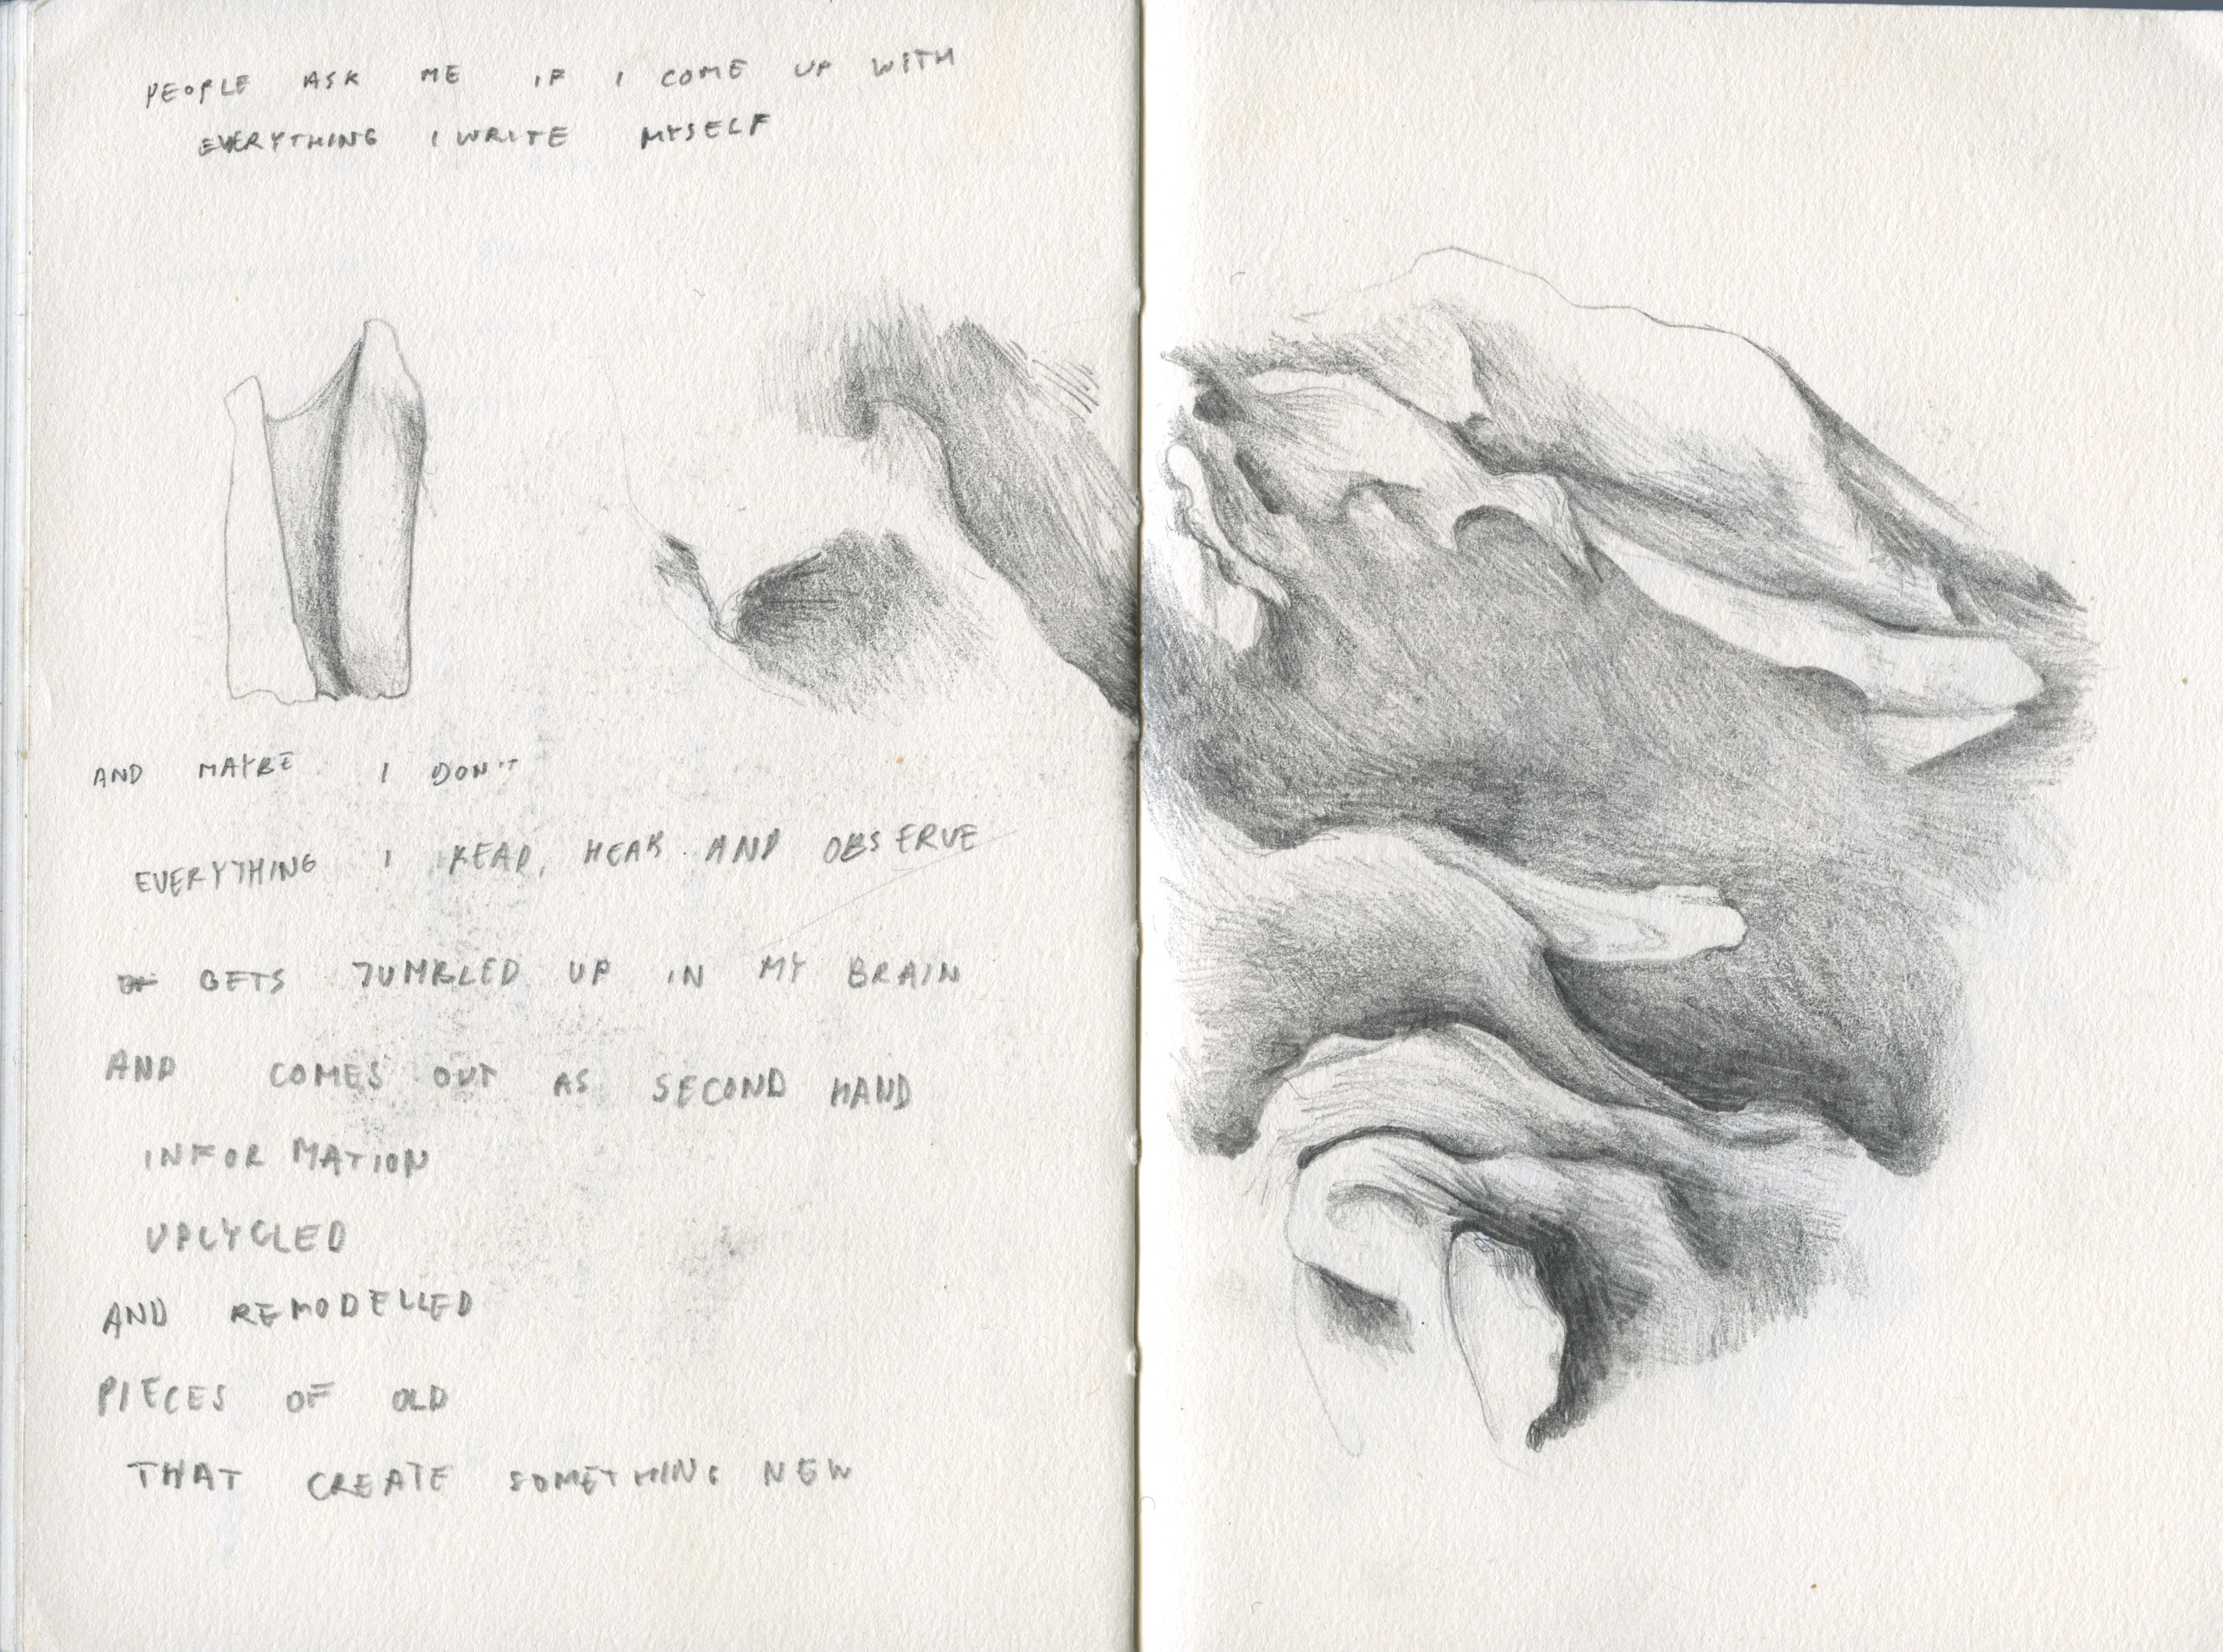 PEOPLE ASK ME IF I COME UP WITH
EVERYTHING I WRITE MYSELF
AND MAYBE I DON'T
EVERYTHING I READ, HEAR AND OBSERVE
GETS JUMBLED UP IN MY BRAIN
AND COMES OUT AS SECOND HAND
INFORMATION
UPCYCLED
AND REMODELLED
PIECES OF OLD
THAT CREATE SOMETHING NEW